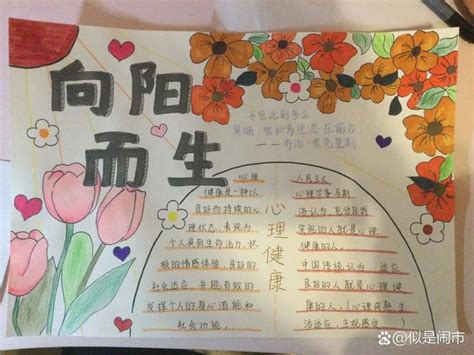 向阳
而生
不管此刻多么
黑暗,爱和希望总在前方。
——乔治·查克里斯
心理
健康是一种认
良好而持续的心
理状态,表现为
个人具有生命活力、积
极的情感体验、良好的
社会适应,能有效的
发挥个人的身心潜能和
社会功能。
心理健康
人民主义
心理学家马斯
洛认为,充分自我
实现的人就是心理
健康的人。
中国传统认为适应
良好的人就是心理健
康的人。(心理成熟、生
活适应、主观感受)
@似是闹市